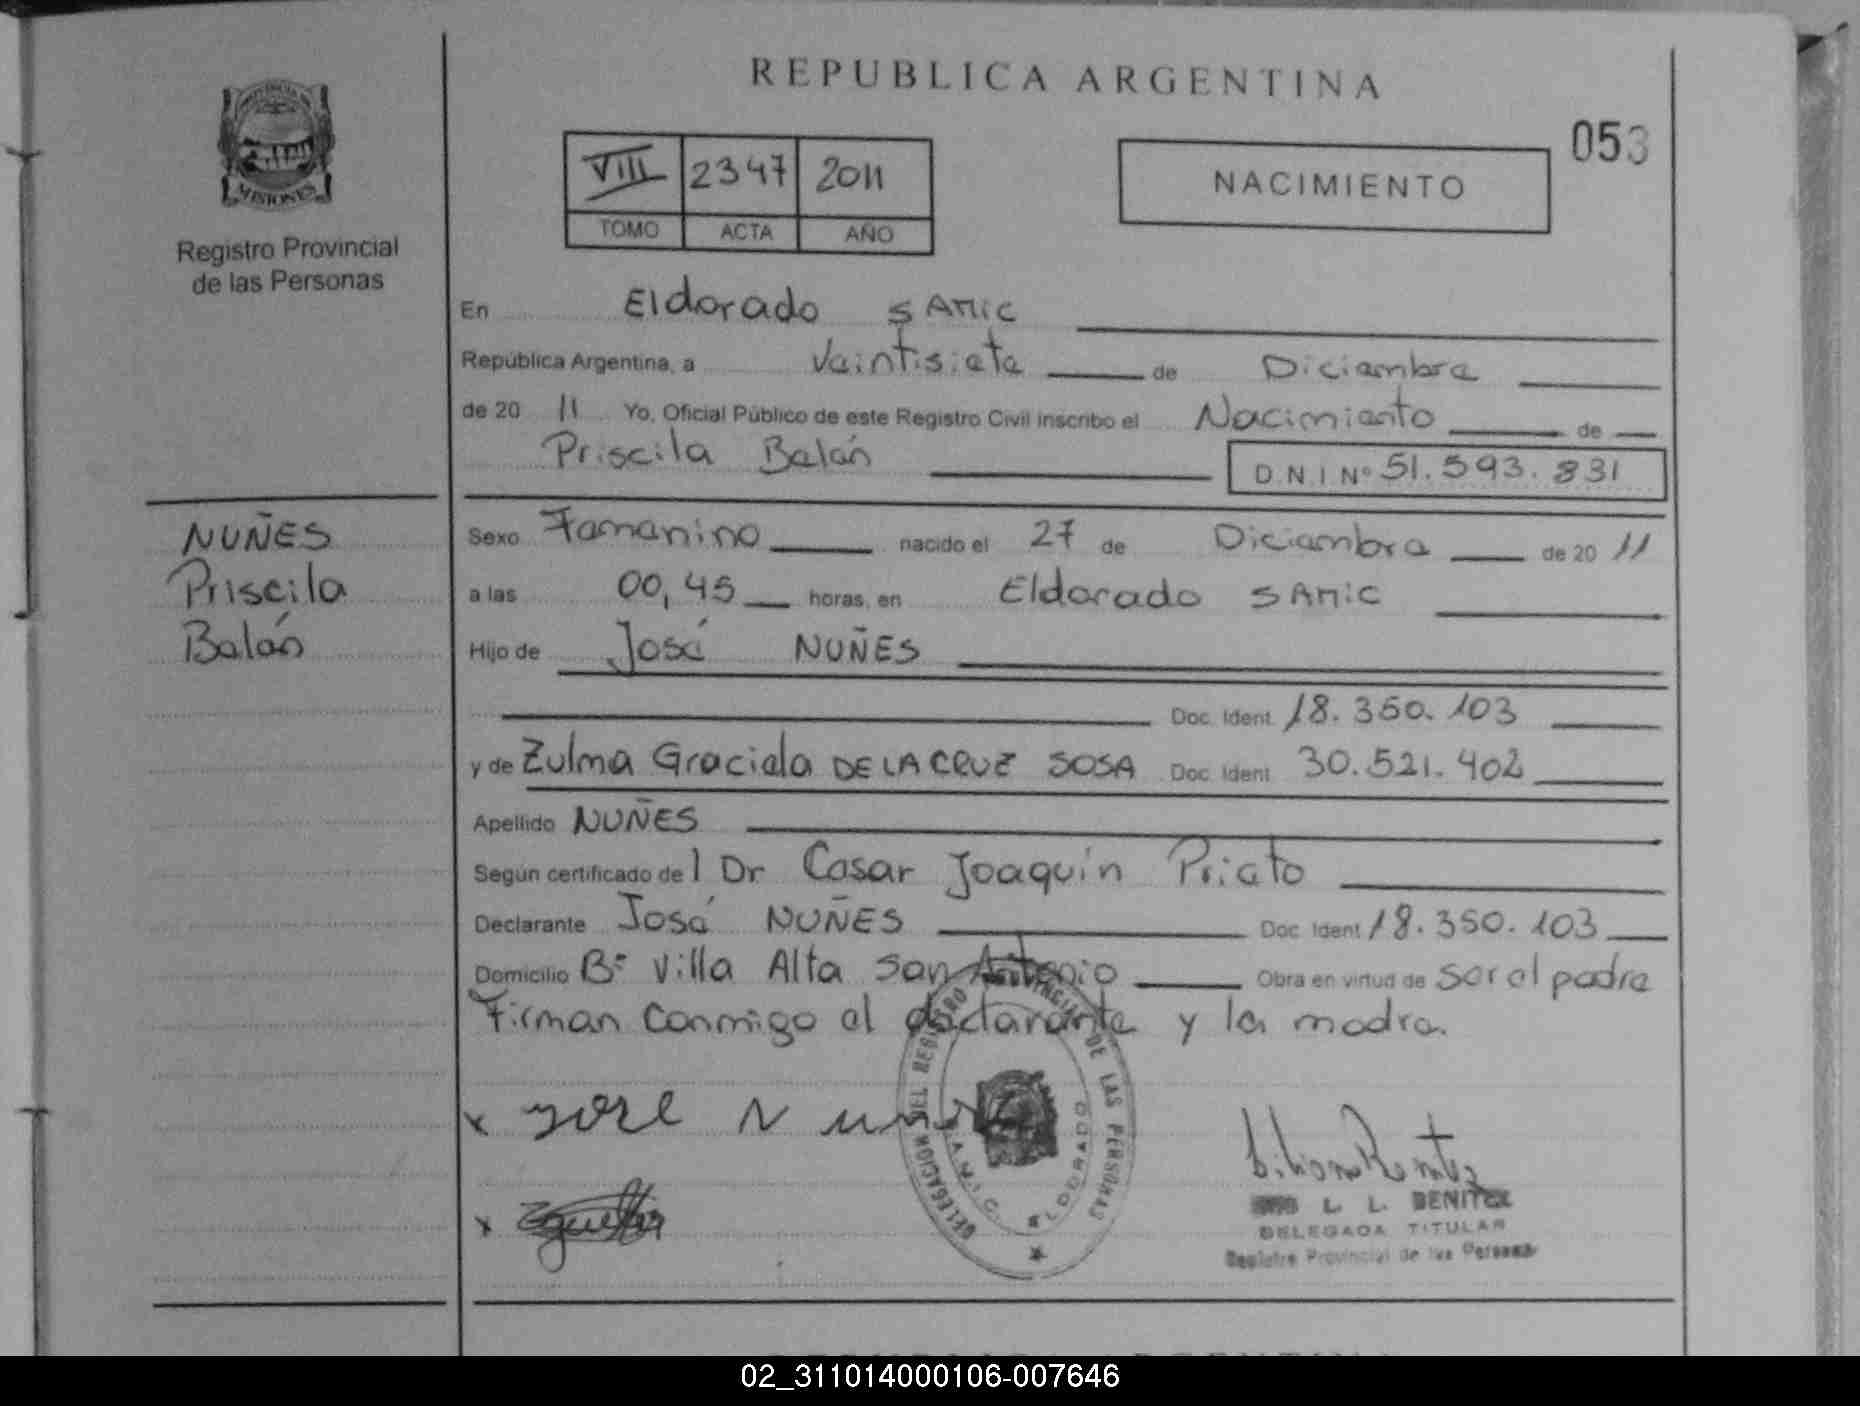 REPUBLICA ARGENTINA
053
MISIONES
Registro Provincial
de las Personas
VIII 2347 2011
TOMO ACTA AÑO
NACIMIENTO
En Eldorado SAMIC
República Argentina, a Veintisiete de Diciembre
de 20 11 Yo, Oficial Público de este Registro Civil inscribo el Nacimiento de
Priscila Belén D.N.I Nº 51.593.831
NUÑES
Priscila
Belén
Sexo Femenino nacido el 27 de Diciembre de 20 11
a las 00,45 horas, en Eldorado SAMIC
Hijo de José NUÑES
Doc. Ident. 18.350.103
y de Zulma Graciela DE LA CRUZ SOSA Doc. Ident. 30.521.402
Apellido NUÑES
Según certificado del Dr Cesar Joaquín Prieto
Declarante José NUÑES Doc. Ident 18.350.103
Domicilio Bº Villa Alta San Antonio Obra en virtud de ser el padre
Firman conmigo el declarante y la madre.
DELEGACION DEL REGISTRO PROVINCIAL DE LAS PERSONAS
S.A.M.I.C. ELDORADO
x José Nuñes
x
L. L. BENITEZ
DELEGADA TITULAR
Registro Provincial de las Personas
02_311014000106-007646